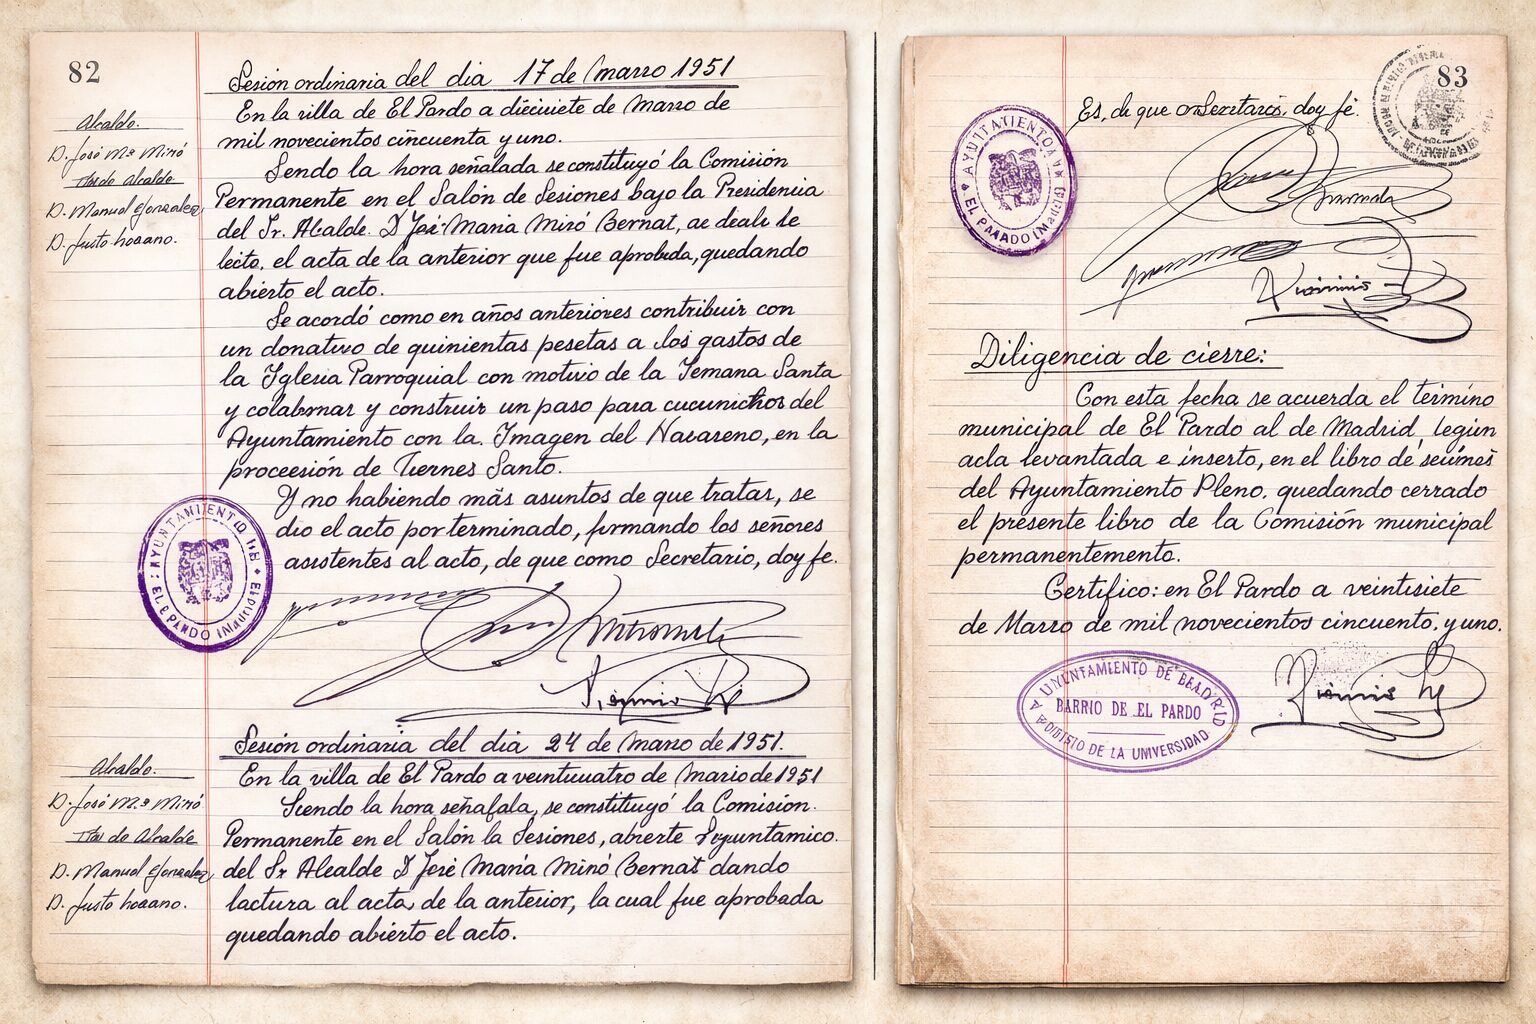 82
Sesión ordinaria del dia 17 de Marzo 1951
Alcaldo.
D. José Mª Miró
Tte de Alcalde
D. Manuel Gonzalez
D. Justo
En la villa de El Pardo a dieciuiete de Marzo de
mil novecientos cincuenta y uno.
Sendo la hora señalada se constituyó la Comisión
Permanente en el Salón de Sesiones bajo la Presidencia
del Sr. Alcalde. D José Maria Miró Bernat, se
lecto, el acta de la anterior que fue aprobada, quedando
abierto el acto.
Se acordó como en años anteriores contribuir con
un donativo de quinientas pesetas a los gastos de
la Yglesia Parroquial con motivo de la Semana Santa
y y construir un paso para del
Ayuntamiento con la. Imagen del Nazareno, en la
proceesión de Viernes Santo.
Y no habiendo más asuntos de que tratas, se
dio el acto por terminado, firmando los señores
asistentes al acto, de que como Secretario, doy fe.
AYUNTAMIENTO
EL PARDO (Madrid)
Sesión ordinaria del dia 24 de Marzo de 1951.
Alcaldo.
D. José M.ª Miró
Tte de Alcalde
D. Manuel Gonzalez
D. Justo
En la villa de El Pardo a veintiuuatro de Marzo de 1951
Siendo la hora señafala, se constituyó la Comisión.
Permanente en el Salón la Sesiones, abierte
del Sr Alcalde D José Maria Miró Bernat dando
lactura al acta de la anterior, la cual fue aprobada
quedando abierto el acto.
83
Es, de que Secretario, doy fé.
EL PARADO
Diligencia de cierre:
Con esta fecha se acuerda el término
municipal de El Pardo al de Madrid, según
acta levantada e inserto, en el libro de
del Ayuntamiento Pleno. quedando cerrado
el presente libro de la Comisión municipal
permanentemento.
Certifico: en El Pardo a veintisiete
de Marzo de mil novecientos cincuento. y uno.
BARRIO DE EL PARDO
DE LA UNIVERSIDAD